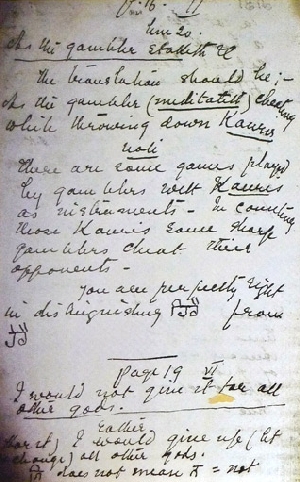 P. 16. VI
Line 20.
As the gambler &c
The translation should be ;-
As the gambler (meditateth) cheating
while throwing down Kauris
note
There are some games played
by gamblers with Kauris
as instruments - In counting
those Kauris some sharp
gamblers cheat their
opponents -
You are perfectly right
in distinguishing from
page 19 VI
I would not give it for all
other gods.
Rather
I would give up (let
change) all other gods.
does not mean = not